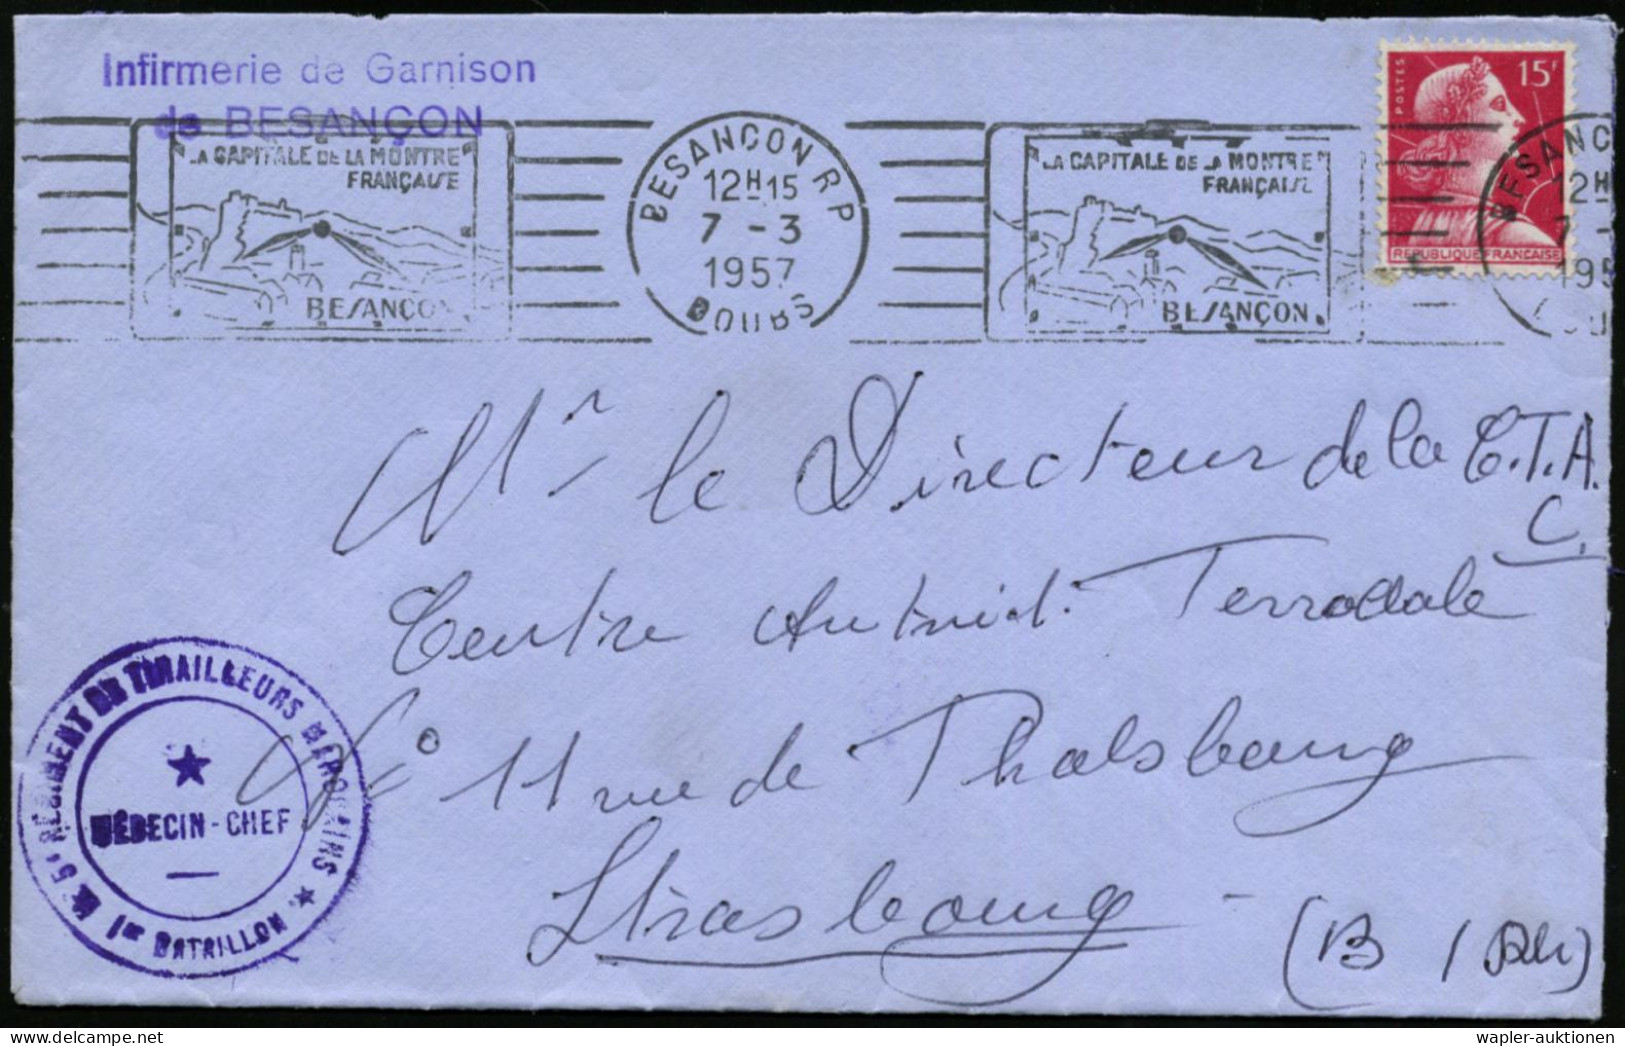 Infirmerie de Garnison
de BESANÇON
LA CAPITALE DE LA MONTRE
FRANÇAISE
BESANÇON
BESANÇON R.P
12H15
7 - 3
1957
DOUBS
LA CAPITALE DE LA MONTRE
FRANÇAISE
BESANÇON
POSTES
15F
REPUBLIQUE FRANÇAISE
BESANÇ
12H
7 -
195
Mr le Directeur de la C.T.A.
C.
Centre Autruit. Terrodale
N° 11 rue de Phalsbourg
Strasbourg -
(B / Rh)
5e RÉGIMENT DE TIRAILLEURS MAROCAINS
MÉDECIN-CHEF
1er BATAILLON
wapler-auktionen